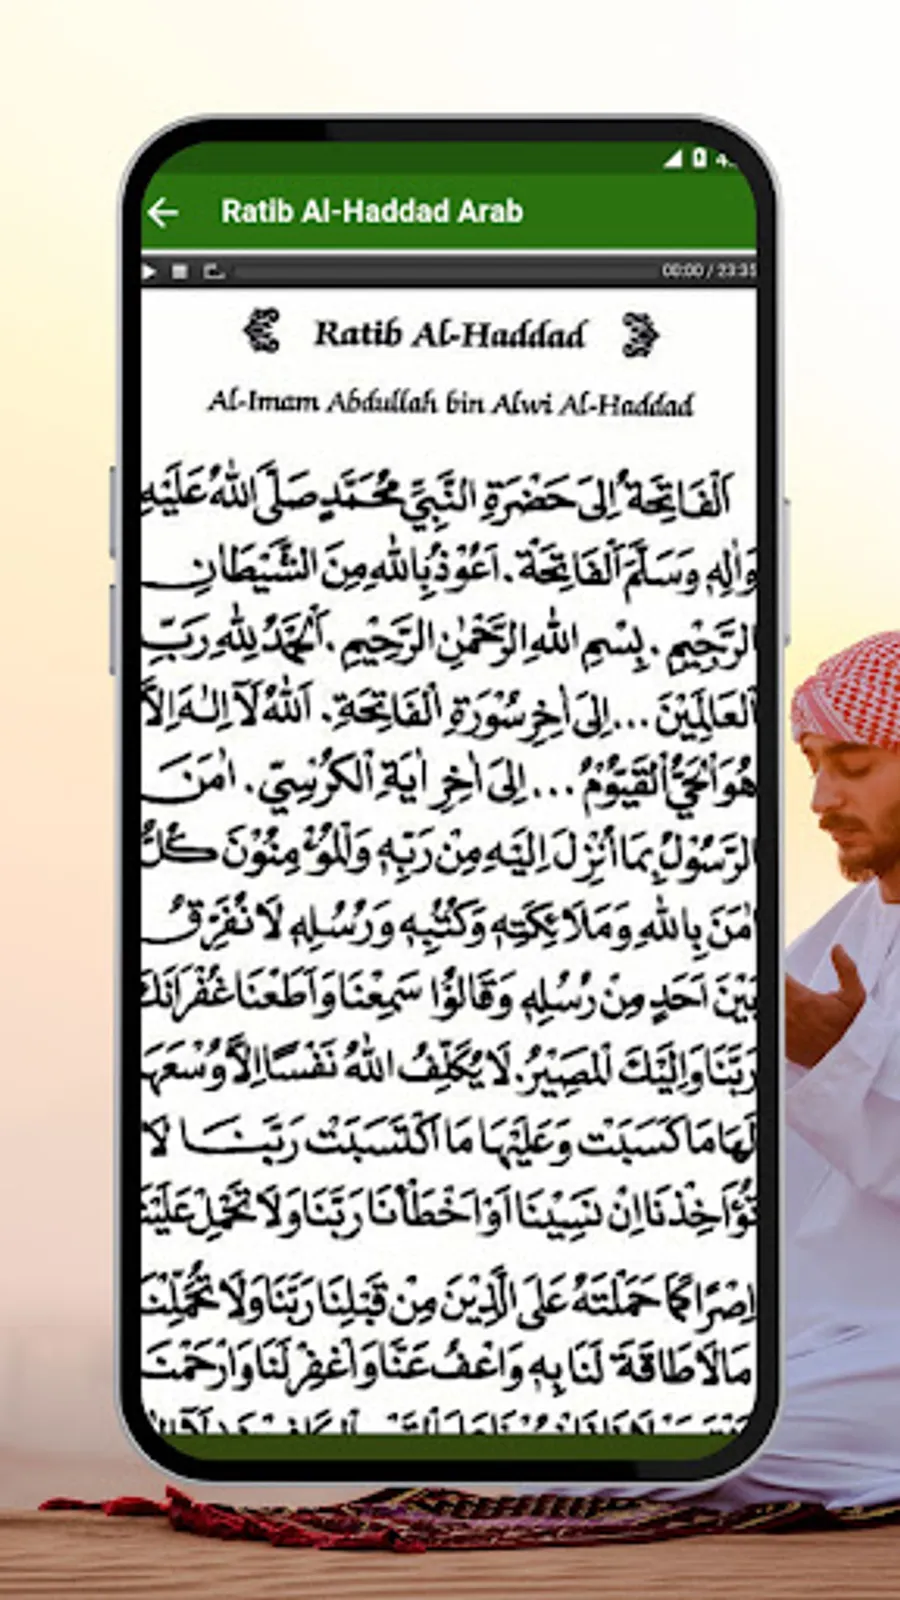 4.
Ratib Al-Haddad Arab
00:00 / 23:35
Ratib Al-Haddad
Al-Imam Abdullah bin Alwi Al-Haddad
اَلْفَاتِحَةُ اِلَى حَضْرَةِ النَّبِيِّ مُحَمَّدٍ صَلَّى اللهُ عَلَيْهِ
وَاٰلِهٖ وَسَلَّمَ اَلْفَاتِحَةْ. اَعُوْذُ بِاللهِ مِنَ الشَّيْطَانِ
الرَّجِيْمِ. بِسْمِ اللهِ الرَّحْمٰنِ الرَّحِيْمِ. اَلْحَمْدُ لِلّٰهِ رَبِّ
الْعَالَمِيْنَ ... اِلَى اٰخِرِ سُوْرَةِ الْفَاتِحَةِ. اَللهُ لَآ اِلٰهَ اِلَّا
هُوَ الْحَيُّ الْقَيُّوْمُ ... اِلَى اٰخِرِ اٰيَةِ الْكُرْسِيِّ. اٰمَنَ
الرَّسُوْلُ بِمَا اُنْزِلَ اِلَيْهِ مِنْ رَبِّهٖ وَالْمُؤْمِنُوْنَ كُلٌّ
اٰمَنَ بِاللهِ وَمَلَائِكَتِهٖ وَكُتُبِهٖ وَرُسُلِهٖ لَا نُفَرِّقُ
بَيْنَ اَحَدٍ مِنْ رُسُلِهٖ وَقَالُوْا سَمِعْنَا وَاَطَعْنَا غُفْرَانَكَ
رَبَّنَا وَاِلَيْكَ الْمَصِيْرُ. لَا يُكَلِّفُ اللهُ نَفْسًا اِلَّا وُسْعَهَا
لَهَا مَا كَسَبَتْ وَعَلَيْهَا مَا اكْتَسَبَتْ رَبَّنَا لَا
تُؤَاخِذْنَا اِنْ نَسِيْنَا اَوْ اَخْطَأْنَا رَبَّنَا وَلَا تَحْمِلْ عَلَيْنَا
اِصْرًا كَمَا حَمَلْتَهُ عَلَى الَّذِيْنَ مِنْ قَبْلِنَا رَبَّنَا وَلَا تُحَمِّلْنَا
مَا لَا طَاقَةَ لَنَا بِهٖ وَاعْفُ عَنَّا وَاغْفِرْ لَنَا وَارْحَمْنَا